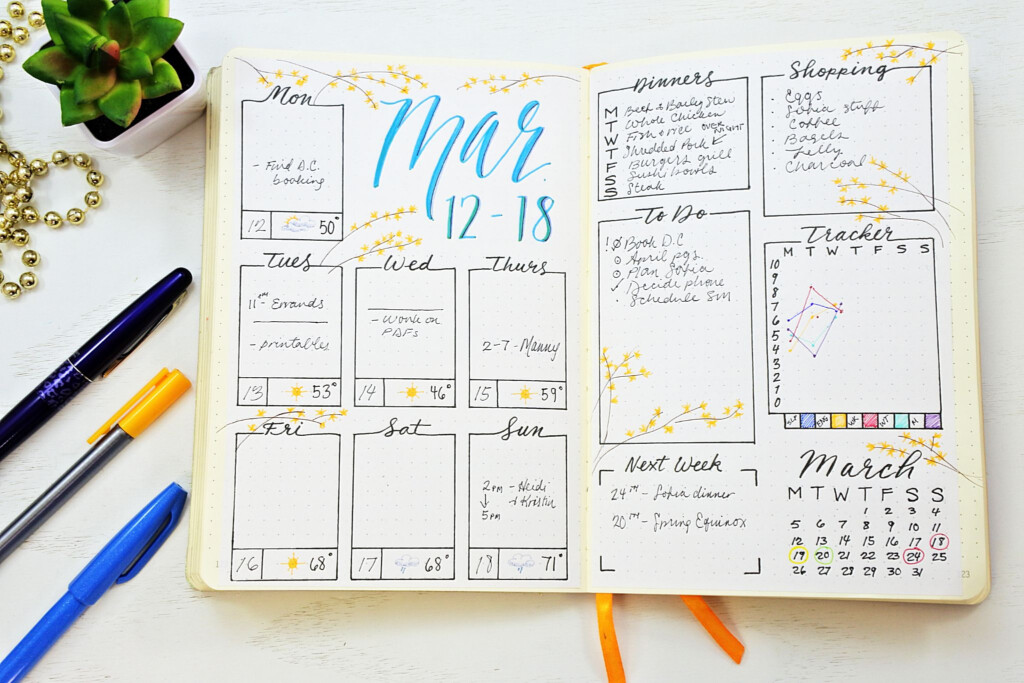 Mon
- Find D.C.
booking
12 50°
Mar.
12-18
Tues
11am - Errands
- printables
13 53°
Wed
- Work on
PDFs
14 46°
Thurs
2-7 - Manny
15 59°
Fri
16 68°
Sat
17 68°
Sun
2pm - Heidi
↓ + Kristin
5pm
18 71°
Dinners
M Beef & Barley Stew
T Whole Chicken
W Fish & rice OVER NIGHT
T Shredded Pork
F Burgers grill
S Sushi bowls
S Steak
Shopping
· Eggs
· Sofia stuff
· Coffee
· Bagels
· Jelly
· Charcoal
To Do
! Book D.C
April pgs.
Plan Sofia
✓ Decide phone
· Schedule SM
Tracker
M T W T F S S
10
9
8
7
6
5
4
3
2
1
0
SLP ENG WK WT
Next Week
24TH - Sofia dinner
20TH - Spring Equinox
March
M T W T F S S
1 2 3 4
5 6 7 8 9 10 11
12 13 14 15 16 17 18
19 20 21 22 23 24 25
26 27 28 29 30 31
23